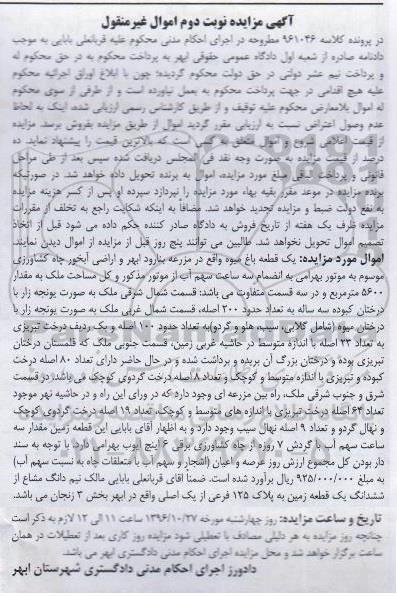 آگهی مزایده نوبت دوم اموال غیرمنقول
در پرونده کلاسه ۹۶۱۰۴۶ مطروحه در اجرای احکام مدنی محکوم علیه قربانعلی بابایی به موجب
دادنامه صادره از شعبه اول دادگاه عمومی حقوقی ابهر به پرداخت محکوم به در حق محکوم له
و پرداخت نیم عشر دولتی در حق دولت محکوم گردیده؛ چون با ابلاغ اوراق اجرائیه محکوم
علیه هیچ اقدامی در جهت پرداخت محکوم به بعمل نیاورده است و از طرفی از سوی محکوم
له اموال بلامعارض محکوم علیه توقیف و از طریق کارشناس رسمی ارزیابی شده، اینک به لحاظ
عدم وصول اعتراض نسبت به ارزیابی مقرر گردید اموال از طریق مزایده بفروش برسد. مزایده
از قیمت اعلامی شروع و اموال متعلق به کسی است که بالاترین قیمت را پیشنهاد نماید. ده
درصد از قیمت مزایده به صورت وجه نقد فی المجلس دریافت شده سپس بعد از طی مراحل
قانونی و پرداخت مابقی مبلغ مورد مزایده، اموال به برنده تحویل داده خواهد شد. در صورتیکه
برنده مزایده در موعد مقرر بقیه بهاء مورد مزایده را نپردازد سپرده او پس از کسر هزینه مزایده
به نفع دولت ضبط و مزایده تجدید خواهد شد. مضافاً به اینکه شکایت راجع به تخلف از مقررات
مزایده ظرف یک هفته از تاریخ فروش به دادگاه صادر کننده حکم داده می شود قبل از اتخاذ
تصمیم اموال تحویل نخواهد شد. طالبین می توانند پنج روز قبل از مزایده از اموال دیدن نمایند.
اموال مورد مزایده: یک قطعه باغ میوه واقع در مزرعه بنارود ابهر و اراضی آبخور چاه کشاورزی
موسوم به موتور بهرامی به انضمام سه ساعت سهم آب از موتور مذکور و کل مساحت ملک به مقدار
۵۶۰۰ مترمربع و در سه قسمت متفاوت می باشد: قسمت شمال شرقی ملک به صورت یونجه زار با
درختان کبوده سه ساله به تعداد حدود ۲۰۰ اصله، قسمت شمال غربی ملک به صورت یونجه زار با
درختان میوه (شامل گلابی، سیب، هلو و گردو)به تعداد حدود ۱۰۰ اصله و یک ردیف درخت تبریزی
به تعداد ۲۳ اصله، با اندازه متوسط در حاشیه غربی زمین، قسمت جنوبی ملک که قلمستان درختان
تبریزی بوده و درختان بزرگ آن بریده و برداشت شده و در حال حاضر دارای تعداد ۸۰ اصله درخت
کبوده و تبریزی با اندازه متوسط و کوچک و تعداد ۸ اصله درخت گردوی کوچک می باشد. در قسمت
شرق و جنوب شرقی ملک، راه بین مزرعه ای وجود دارد که در ورای این راه و در حاشیه نهر موجود
تعداد ۶۴ اصله درخت تبریزی با اندازه های متوسط و کوچک، تعداد ۹ اصله درخت گردوی کوچک
و نهال گردو و تعداد ۹ اصله نهال سیب وجود دارد و به اظهار آقای بابایی این قطعه زمین مقدار سه
ساعت سهم آب با گردش ۷ روزه از چاه کشاورزی برقی ۶ اینچ ایوب بهرامی دارد. با توجه به سند
دار بودن کل مجموع ارزش روز عرصه و اعیان (اشجار و سهم آب با متعلقات چاه به نسبت سهم آب)
به مبلغ ۹۲۵/۰۰۰/۰۰۰ ریال برآورد شده است. ضمناً آقای قربانعلی بابایی مالک نیم دانگ مشاع از
ششدانگ یک قطعه زمین به پلاک ۱۲۵ فرعی از یک اصلی واقع در ابهر بخش ۳ زنجان می باشد.
تاریخ و ساعت مزایده: روز چهارشنبه مورخه ۱۳۹۶/۱۰/۲۷ ساعت ۱۱ الی ۱۲ لازم به ذکر است
چنانچه روز مزایده به هر دلیلی مصادف با تعطیلی شود مزایده روز کاری بعد از تعطیلات در همان
ساعت برگزار خواهد شد و محل مزایده اجرای احکام مدنی دادگستری ابهر می باشد.
دادورز اجرای احکام مدنی دادگستری شهرستان ابهر